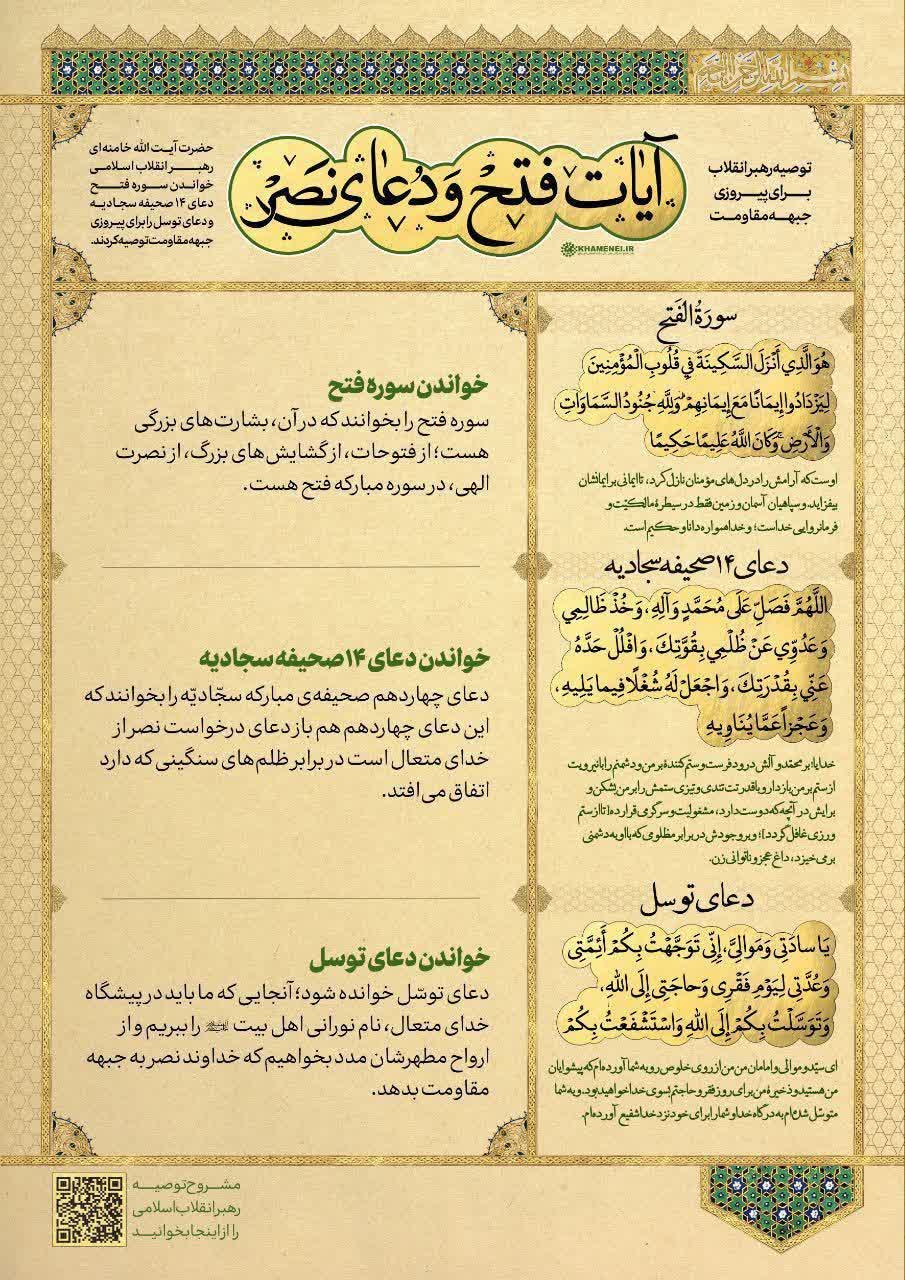 بسم الله الرحمن الرحیم
توصیه رهبر انقلاب
برای پیروزی
جبهه مقاومت
آیات فتح و دعای نصر
KHAMENEI.IR
حضرت آیت الله خامنه‌ای
رهبر انقلاب اسلامی
خواندن سوره فتح
دعای ۱۴ صحیفه سجادیه
و دعای توسل را برای پیروزی
جبهه مقاومت توصیه کردند.
سورة الفَتح
هُوَ الَّذِي أَنْزَلَ السَّكِينَةَ فِي قُلُوبِ الْمُؤْمِنِينَ
لِيَزْدَادُوا إِيمَانًا مَعَ إِيمَانِهِمْ ۗ وَلِلَّهِ جُنُودُ السَّمَاوَاتِ
وَالْأَرْضِ ۚ وَكَانَ اللَّهُ عَلِيمًا حَكِيمًا
اوست که آرامش را در دل‌های مؤمنان نازل کرد، تا ایمانی بر ایمانشان
بیفزاید. و سپاهیان آسمان و زمین فقط در سیطرهٔ مالکیّت و
فرمانروایی خداست؛ و خدا همواره دانا و حکیم است.
خواندن سوره فتح
سوره فتح را بخوانند که در آن، بشارت‌های بزرگی
هست؛ از فتوحات، از گشایش‌های بزرگ، از نصرت
الهی، در سوره مبارکه فتح هست.
دعای ۱۴ صحیفه سجادیه
اللَّهُمَّ فَصَلِّ عَلَى مُحَمَّدٍ وَآلِهِ، وَخُذْ ظَالِمِي
وَعَدُوِّي عَنْ ظُلْمِي بِقُوَّتِكَ، وَافْلُلْ حَدَّهُ
عَنِّي بِقُدْرَتِكَ، وَاجْعَلْ لَهُ شُغْلًا فِيما يَلِيهِ،
وَعَجْزاً عَمَّا يُنَاوِيهِ
خدایا! بر محمّد و آلش درود فرست و ستم کنندهٔ بر من و دشمنم را با نیرویت
از ستم بر من باز دار و با قدرتت تندی و تیزی ستمش را بر من بشکن و
برایش در آنچه که دوست دارد، مشغولیت و سرگرمی قرار ده [تا از ستم
ورزی غافل گردد]؛ و بر وجودش در برابر مظلومی که با او به دشمنی
برمی‌خیزد، داغ عجز و ناتوانی زن.
خواندن دعای ۱۴ صحیفه سجادیه
دعای چهاردهم صحیفه‌ی مبارکه سجّادیّه را بخوانند که
این دعای چهاردهم هم باز دعای درخواست نصر از
خدای متعال است در برابر ظلم‌های سنگینی که دارد
اتفاق می‌افتد.
دعای توسل
يَا سادَتِي وَمَوالِيَّ، إِنِّي تَوَجَّهْتُ بِكُمْ أَئِمَّتِي
وَعُدَّتِي لِيَوْمِ فَقْرِي وَحاجَتِي إِلَى اللهِ،
وَتَوَسَّلْتُ بِكُمْ إِلَى اللهِ وَاسْتَشْفَعْتُ بِكُمْ
ای سیّد و موالی و امامان من من از روی خلوص رو به شما آورده‌ام که پیشوایان
من هستید و ذخیرهٔ من برای روز فقر و حاجتم بسوی خدا خواهید بود. و به شما
متوسّل شده‌ام به درگاه خدا و شما را برای خود نزد خدا شفیع آورده‌ام.
خواندن دعای توسل
دعای توسّل خوانده شود؛ آنجایی که ما باید در پیشگاه
خدای متعال، نام نورانی اهل بیت را ببریم و از
ارواح مطهرشان مدد بخواهیم که خداوند نصر به جبهه
مقاومت بدهد.
مشروح توصیه
رهبر انقلاب اسلامی
را از اینجا بخوانید